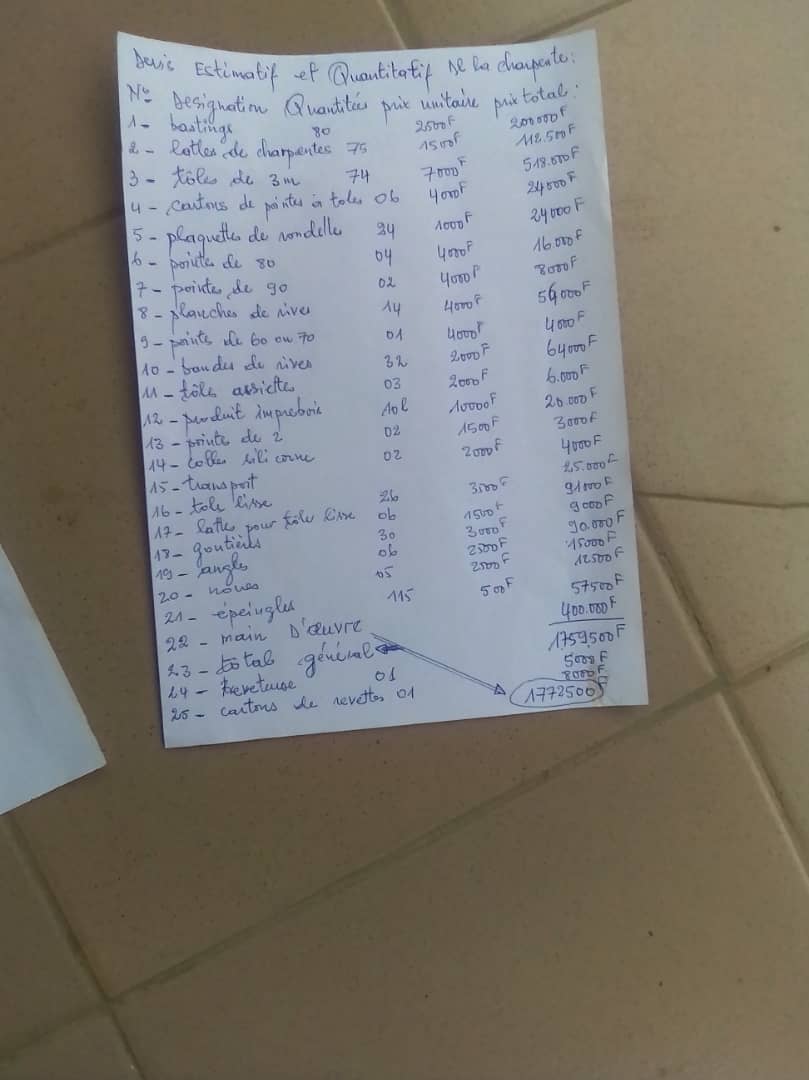 Devis Estimatif et Quantitatif De la charpente:
N° Designation Quantités prix unitaire prix total:
1- bastings 80 2500F 200000F
2- lattes de charpentes 75 1500F 112.500F
3- tôles de 3m 74 7000F 518.000F
4- cartons de pointes à toles 06 4000F 24000F
5- plaquettes de rondelle 24 1000F 24000F
6- pointes de 80 04 4000F 16000F
7- pointes de 90 02 4000F 8000F
8- planches de rives 14 4000F 56000F
9- pointe de 60 ou 70 01 4000F 4000F
10- bandes de rives 32 2000F 64000F
11- tôle assiettes 03 2000F 6.000F
12- produit imprebois 10l 10000F 20.000F
13- pointe de 2 02 1500F 3000F
14- colle silicorne 02 2000F 4000F
15- transport 25.000F
16- tole lisse 26 3500F 91000F
17- latte pour tôle lisse 06 1500F 9000F
18- goutières 30 3000F 90.000F
19- angles 06 2500F 15000F
20- noues 05 2500F 12500F
21- épeingles 115 500F 57500F
22- main D'œuvre 400.000F
23- total général 1759500F
24- Reveteuse 01 5000F
25- cartons de revettes 01 8000F
1772500F